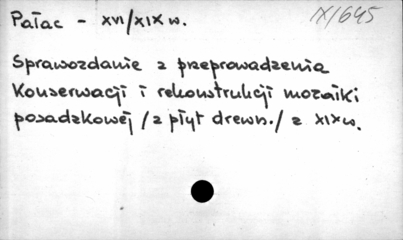 Pałac - XVI/XIX w.
IX/645
Sprawozdanie z przeprowadzenia
Konserwacji i rekonstrukcji mozaiki
posadzkowej /z płyt drewn./ z XIX w.